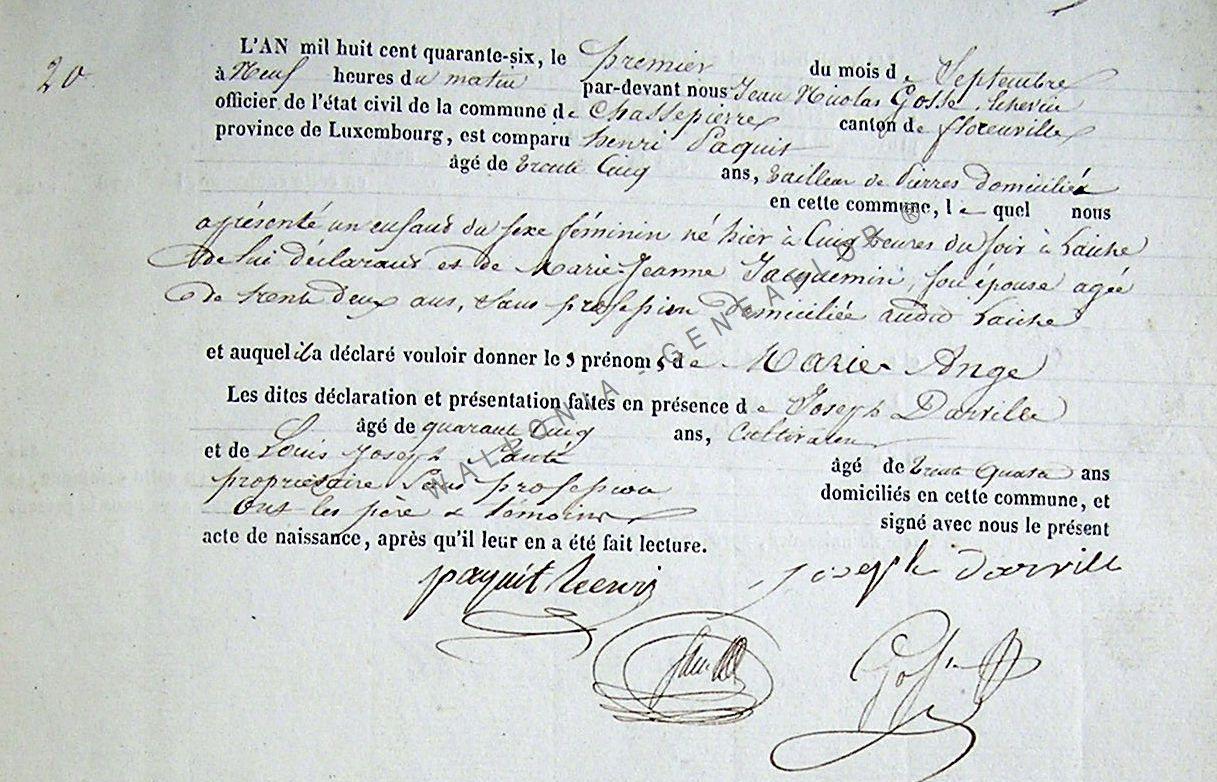 20
L'AN mil huit cent quarante-six, le premier du mois de Septembre
à Neuf heures du matin par-devant nous Jean Nicolas Gosse, Echevin
officier de l'état civil de la commune de Chassepierre canton de florenville
province de Luxembourg, est comparu henri Paquit
âgé de trente Cinq ans, tailleur de Pierres domicilié
en cette commune, le quel nous
a présenté un enfant du sexe féminin né hier à Cinq heures du soir à Laiche
de lui déclarant et de Marie-Jeanne Jacquemin, son épouse agée
de trente deux ans, Sans profession domiciliée audit Laiche
et auquel il a déclaré vouloir donner le s prénom s de Marie-Ange
Les dites déclaration et présentation faites en présence de Joseph Darville
âgé de quarant Cinq ans, Cultivateur
et de Louis Joseph âgé de trente quatre ans
propriétaire Sans profession domiciliés en cette commune, et
Ont les père & témoins signé avec nous le présent
acte de naissance, après qu'il leur en a été fait lecture.
paquit henri
Joseph darville
Gosse
WALLONIA - GENEALOR ®